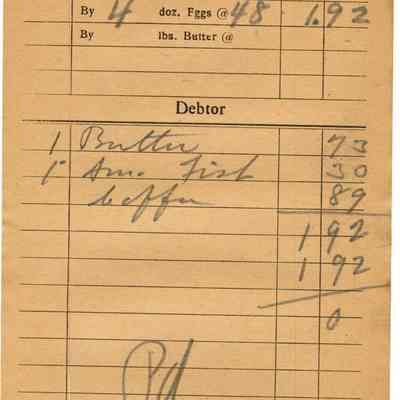 By 4 doz. Eggs @ 48 1.92
By lbs. Butter @
Debtor
1 Butter 73
1 Am. Fish 30
Coffee 89
1 92
1 92
0
Pd